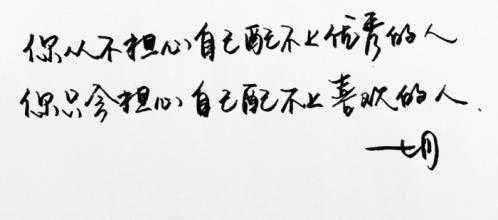 你从不担心自己配不上优秀的人
你只会担心自己配不上喜欢的人.
—七月